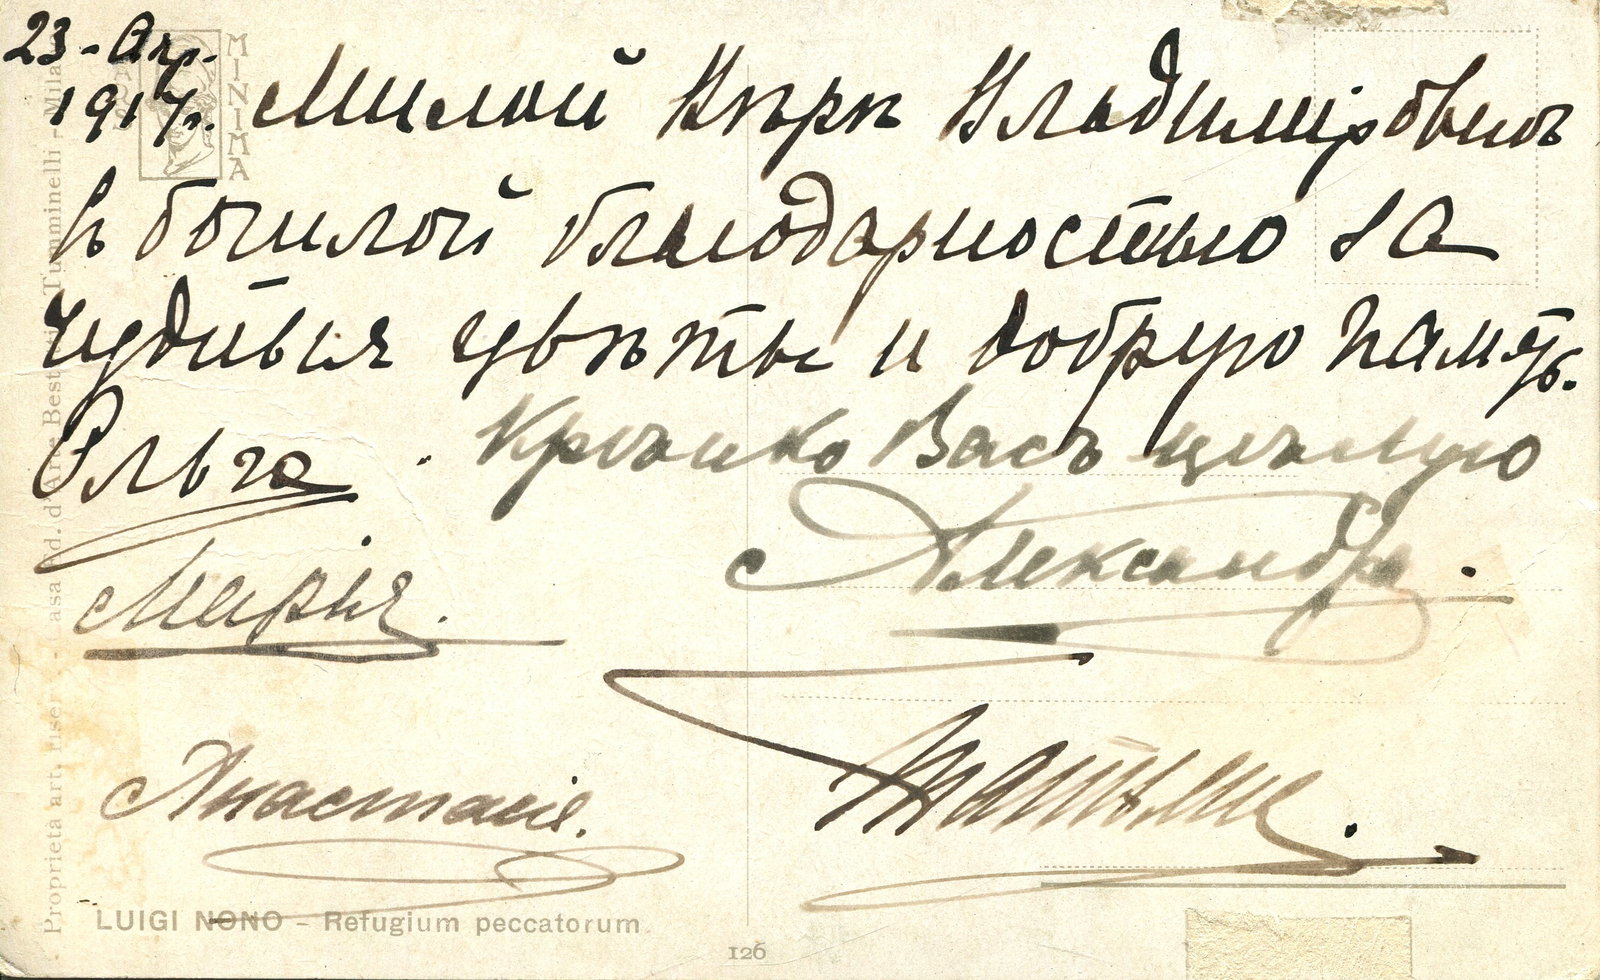 23 - Апр.
1917 г. Милой Вѣрѣ Владиміровнѣ
съ большой благодарностью за
чудныя цвѣты и добрую память.
Ольга. Крѣпко Васъ цѣлую
Александра.
Марія.
Татьяна.
Анастасія.
LUIGI NONO – Refugium peccatorum
126
MINIMA
ARS
Proprietà art. riser. - Casa ed. d'Arte Bestetti e Tumminelli - Milano